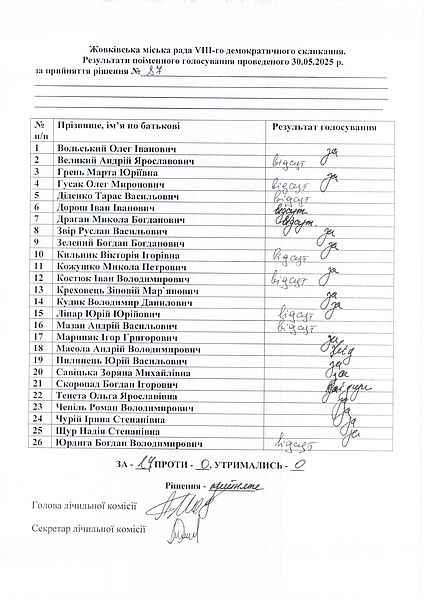 Жовківська міська рада VIII-го демократичного скликання.
Результати поіменного голосування проведеного 30.05.2025 р.
за прийняття рішення № 87
№ п/п Прізвище, ім’я по батькові Результат голосування
1 Вольський Олег Іванович за
2 Великий Андрій Ярославович відсут
3 Грень Марта Юріївна за
4 Гусак Олег Миронович відсут
5 Діденко Тарас Васильович відсут
6 Дорош Іван Іванович відсут
7 Драган Микола Богданович відсут.
8 Звір Руслан Васильович за
9 Зелений Богдан Богданович за
10 Кильник Вікторія Ігорівна відсут
11 Кожушко Микола Петрович за
12 Костюк Іван Володимирович відсут
13 Креховець Зіновій Мар`янович за
14 Кудик Володимир Данилович за
15 Ліпар Юрій Юрійович відсут
16 Мазан Андрій Васильович відсут
17 Мариняк Ігор Григорович за
18 Масола Андрій Володимирович
19 Пилипець Юрій Васильович за
20 Савіцька Зоряна Михайлівна за
21 Скоропад Богдан Ігорович
22 Тенета Ольга Ярославівна за
23 Чепіль Роман Володимирович за
24 Чурій Ірина Степанівна за
25 Щур Надія Степанівна за
26 Юрдига Богдан Володимирович відсут
ЗА - 17 ПРОТИ - 0, УТРИМАЛИСЬ - 0
Рішення - прийняте
Голова лічильної комісії
Секретар лічильної комісії